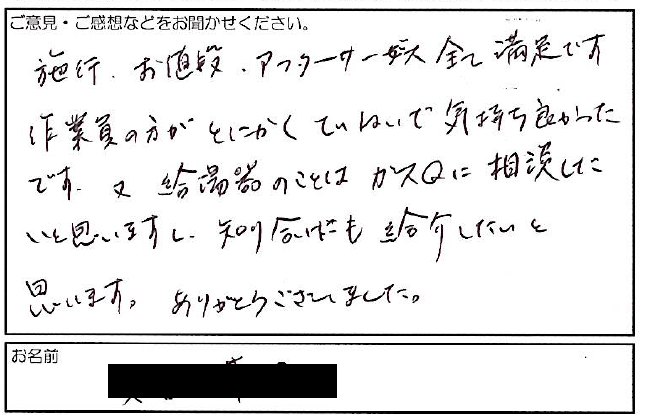 ご意見・ご感想などをお聞かせください。
施行、お値段、アフターサービス全て満足です
作業員の方がとにかくていねいで気持ち良かった
です。又給湯器のことはガスQに相談した
いと思いますし、知り合いにも給介したいと
思います。ありがとうございました。
お名前